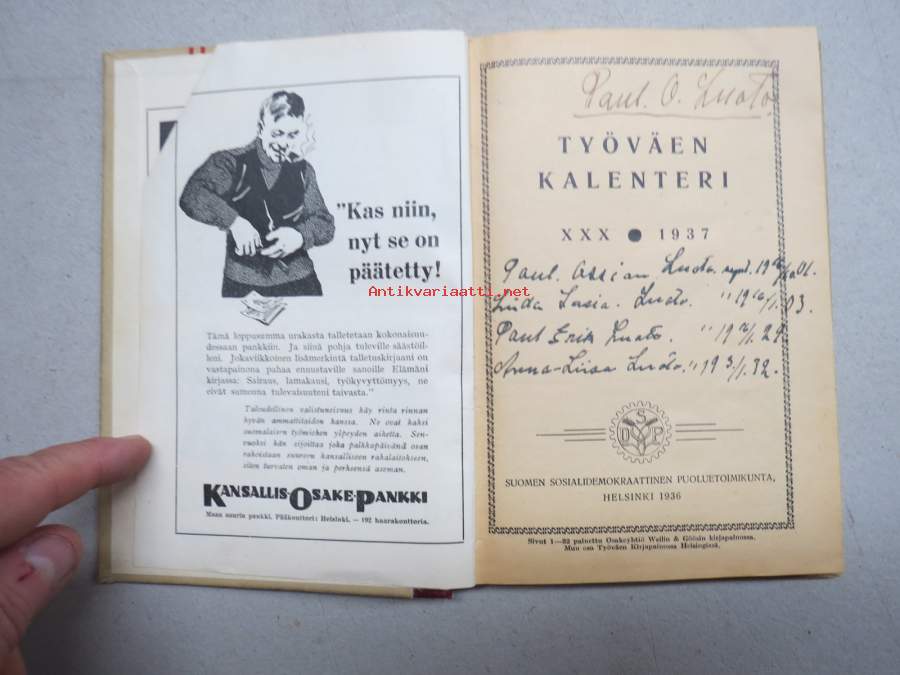 "Kas niin,
nyt se on
päätetty!
Tämä loppusumma urakasta talletetaan kokonaisuu-
dessaan pankkiin. Ja siinä pohja tuleville säästöil-
leni. Jokaviikkoinen lisämerkintä talletuskirjaani on
vastapainona pahaa ennustaville sanoille Elämäni
kirjassa: Sairaus, lamakausi, työkyvyttömyys, ne
eivät sumenna tulevaisuuteni taivasta."
Taloudellinen valistuneisuus käy rinta rinnan
hyvän ammattitaidon kanssa. Ne ovat kaksi
suomalaisen työmiehen ylpeyden aihetta. Sen-
vuoksi hän sijoittaa joka palkkapäivänä osan
rahoistaan suureen kansalliseen rahalaitokseen,
siten turvaten oman ja perheensä aseman.
KANSALLIS-OSAKE-PANKKI
Maan suurin pankki. Pääkonttori: Helsinki. — 192 haarakonttoria.
Paul. O. Luoto
TYÖVÄEN
KALENTERI
XXX ● 1937
Paul. Ossian Luoto. synt. 19 01.
Antikvariaatti.net
Luoto. " 19 03.
Paul Erik Luoto. " 19 29
Anna-Liisa Luoto. " 19 32.
S
D P
SUOMEN SOSIALIDEMOKRAATTINEN PUOLUETOIMIKUNTA,
HELSINKI 1936
Sivut 1—32 painettu Osakeyhtiö Weilin & Göösin kirjapainossa.
Muu osa Työväen Kirjapainossa Helsingissä.